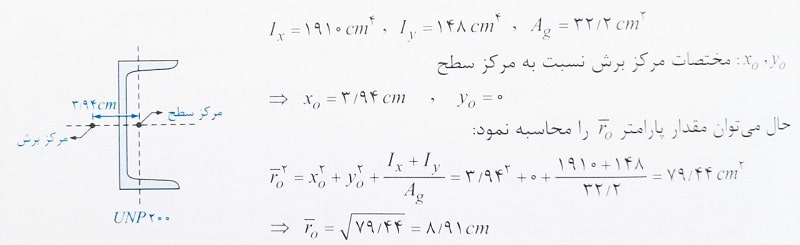 I_x = ۱۹۱۰ cm^۴ , I_y = ۱۴۸ cm^۴ , A_g = ۳۲/۲ cm^۲
x_o , y_o : مختصات مرکز برش نسبت به مرکز سطح
⇒ x_o = ۳/۹۴ cm , y_o = ۰
حال می‌توان مقدار پارامتر r̅_o را محاسبه نمود:
r̅_o^۲ = x_o^۲ + y_o^۲ + (I_x + I_y)/A_g = ۳/۹۴^۲ + ۰ + (۱۹۱۰ + ۱۴۸)/۳۲/۲ = ۷۹/۴۴ cm^۲
⇒ r̅_o = √۷۹/۴۴ = ۸/۹۱ cm
۳/۹۴ cm
مرکز سطح
مرکز برش
UNP۲۰۰